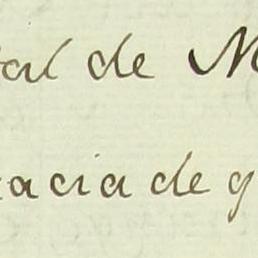 tal de M
acia de q